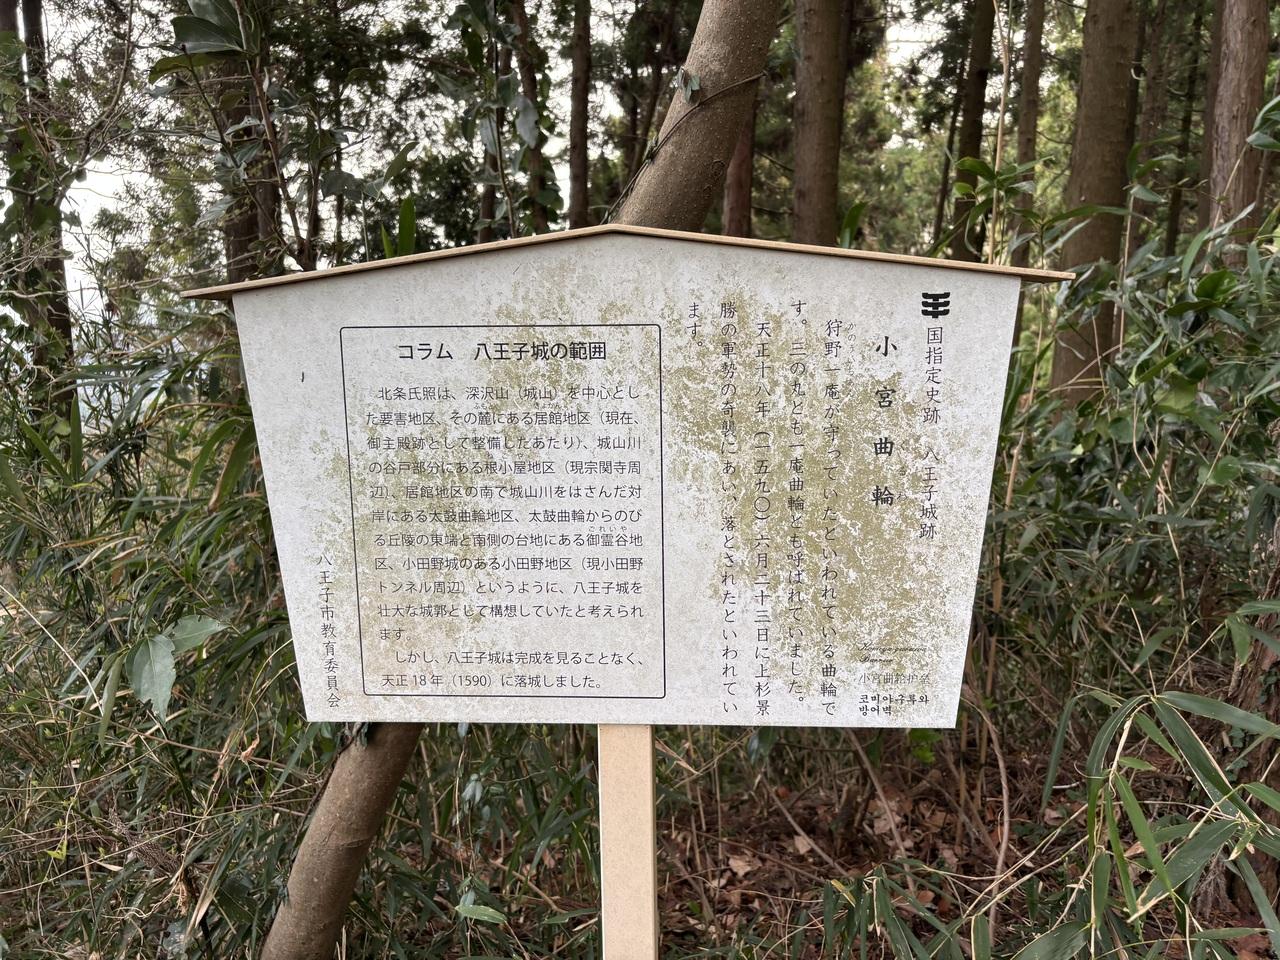 国指定史跡　八王子城跡
小宮曲輪
狩野一庵が守っていたといわれている曲輪で
す。三の丸とも一庵曲輪とも呼ばれていました。
天正十八年（一五九〇）六月二十三日に上杉景
勝の軍勢の奇襲にあい、落とされたといわれてい
ます。
小宮曲輪护垒
코미야구루와
방어벽
コラム　八王子城の範囲
北条氏照は、深沢山（城山）を中心とし
た要害地区、その麓にある居館地区（現在、
御主殿跡として整備したあたり）、城山川
の谷戸部分にある根小屋地区（現宗関寺周
辺）、居館地区の南で城山川をはさんだ対
岸にある太鼓曲輪地区、太鼓曲輪からのび
る丘陵の東端と南側の台地にある御霊谷地
区、小田野城のある小田野地区（現小田野
トンネル周辺）というように、八王子城を
壮大な城郭として構想していたと考えられ
ます。
しかし、八王子城は完成を見ることなく、
天正18年（1590）に落城しました。
八王子市教育委員会